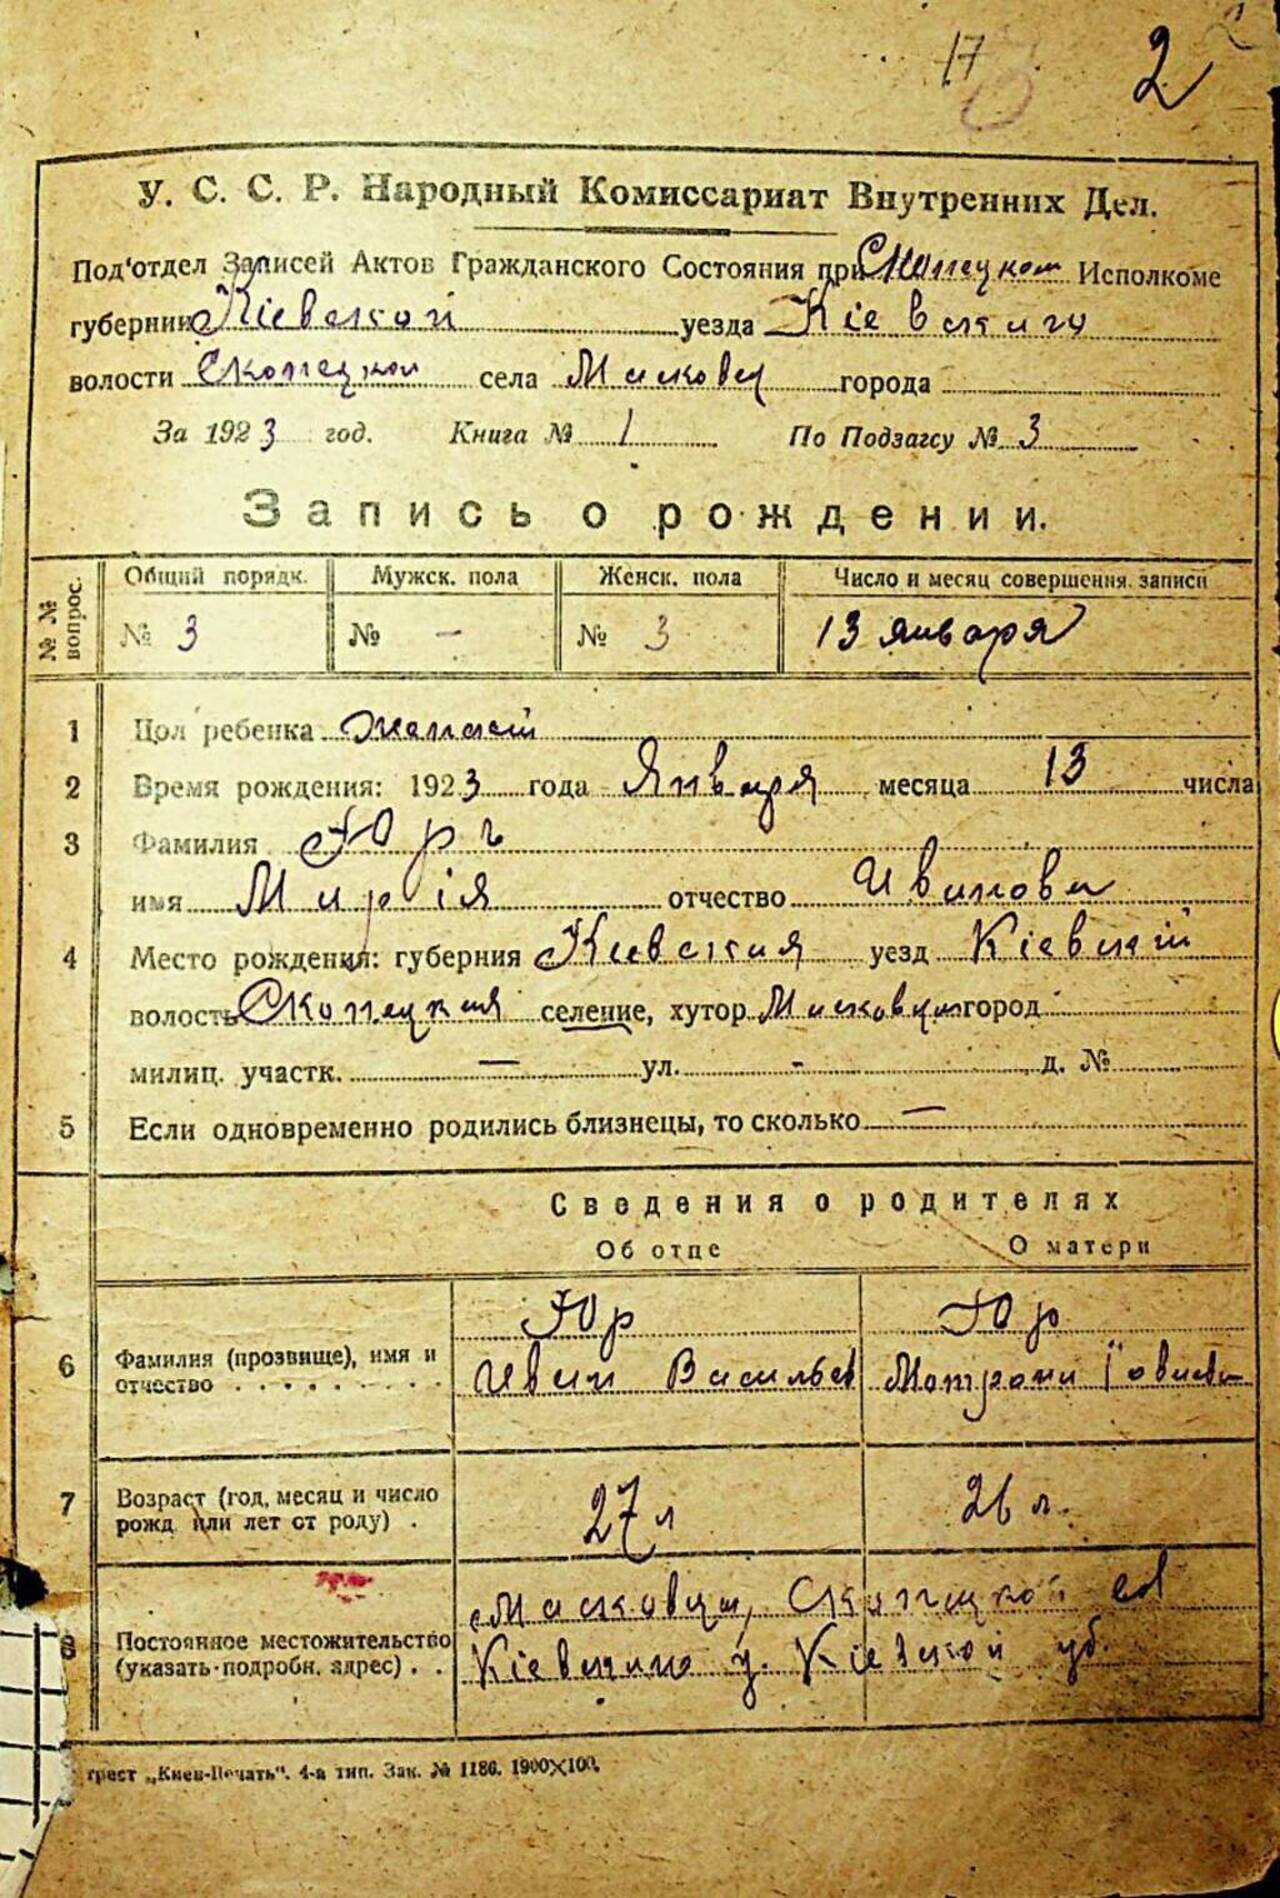 17 2
У. С. С. Р. Народный Комиссариат Внутренних Дел.
Под'отдел Записей Актов Гражданского Состояния при Скопецком Исполкоме
губернии Кіевской уезда Кіевскаго
волости Скопецкой села Масковцы города
За 1923 год. Книга № 1 По Подзагсу № 3
Запись о рождении.
№ № вопрос. Общий порядк. Мужск. пола Женск. пола Число и месяц совершения. записи
№ 3 № — № 3 13 января
1 Пол ребенка женскій
2 Время рождения: 1923 года Января месяца 13 числа
3 Фамилия Юръ
имя Марія отчество Иванова
4 Место рождения: губерния Киевская уезд Кіевскій
волость Скопецкая селение, хутор Масковцы город
милиц. участк. — ул. - д. №
5 Если одновременно родились близнецы, то сколько —
Сведения о родителях
Об отце О матери
Юр Юр
6 Фамилия (прозвище), имя и
отчество . . . . . . . . Иван Васильев Матрона
7 Возраст (год, месяц и число
рожд. или лет от роду) . 27 л 26 л.
Масковцы, Скопецкой вол
8 Постоянное местожительство
(указать подробн. адрес) . . Кіевскаго у. Кіевской губ.
трест „Киев-Печать". 4-я тип. Зак. № 1186. 1900×100.